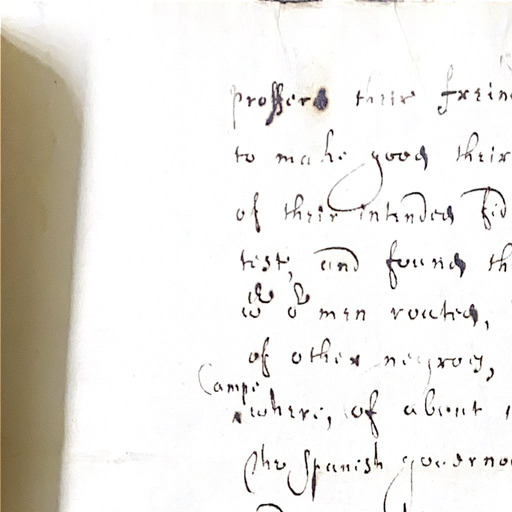 proffers their frein
to make good their
of their intended fid
test, and found th
men routed,
of other negroes,
Campe
where, of about
the Spanish governo